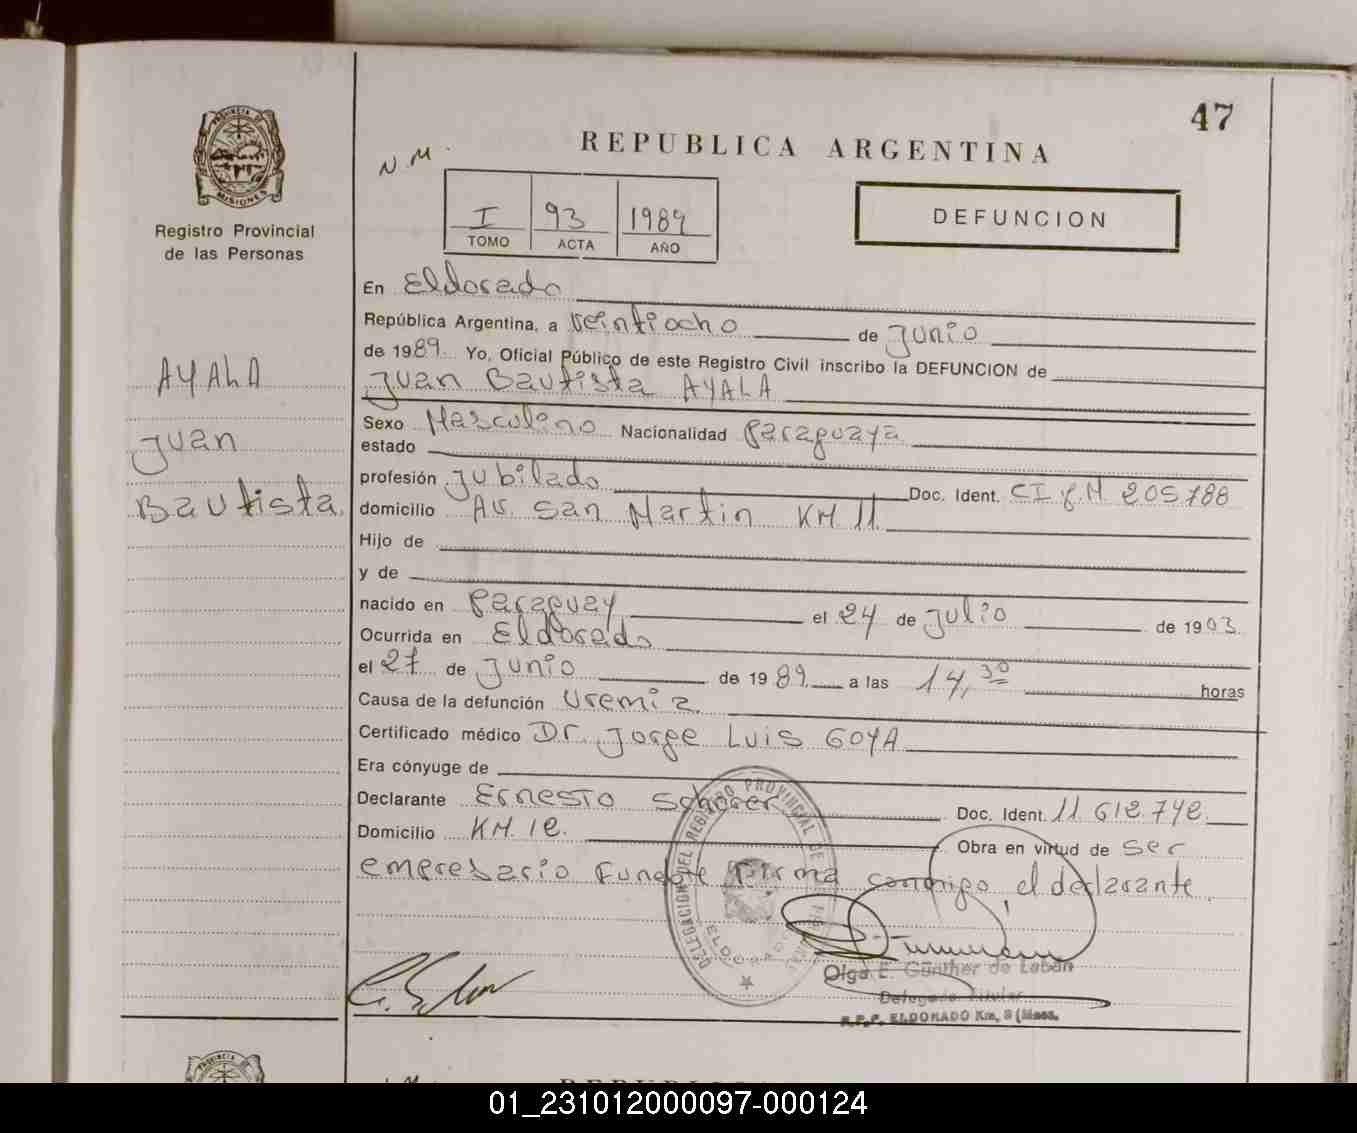 47
PROVINCIA DE
MISIONES
Registro Provincial
de las Personas
N.M.
REPUBLICA ARGENTINA
I 93 1989
TOMO ACTA AÑO
DEFUNCION
En Eldorado
República Argentina, a veintiocho de Junio
de 1989 Yo, Oficial Público de este Registro Civil inscribo la DEFUNCION de
Juan Bautista AYALA
Sexo Masculino Nacionalidad Paraguaya
estado
profesión Jubilado Doc. Ident. CI P.M 205788
domicilio Av. San Martin KM 11
Hijo de
y de
nacido en Paraguay el 24 de Julio de 1903
Ocurrida en Eldorado
el 27 de Junio de 1989 a las 14,30 horas
Causa de la defunción Uremia
Certificado médico Dr. Jorge Luis GOYA
Era cónyuge de
Declarante Ernesto Scherer Doc. Ident. 11.612.742
Domicilio KM. 12. Obra en virtud de ser
empresario Funebre Firma conmigo, el declarante
AYALA
Juan
Bautista
DELEGACION DEL REGISTRO PROVINCIAL DE
ELDORADO
Olga E. Günther de Laban
Delegado Titular
R.P.P. ELDORADO Km, 9 (Mnes.
PROVINCIA DE
01_231012000097-000124